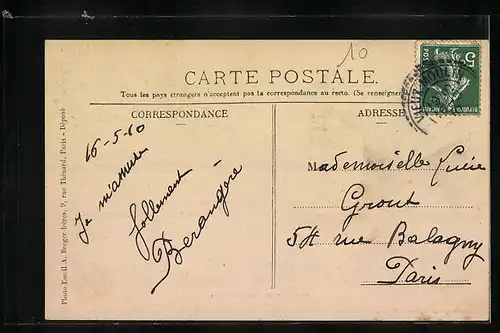 10
CARTE POSTALE.
Tous les pays étrangers n'acceptent pas la correspondance au recto. (Se renseigner
CORRESPONDANCE
ADRESSE
16-5-10
Je m'amuse
follement
Berangère
Mademoiselle
Grout
54 rue Balagny
Paris
Photo Email A. Breger frères, 9, rue Thénard, Paris - Déposé
5